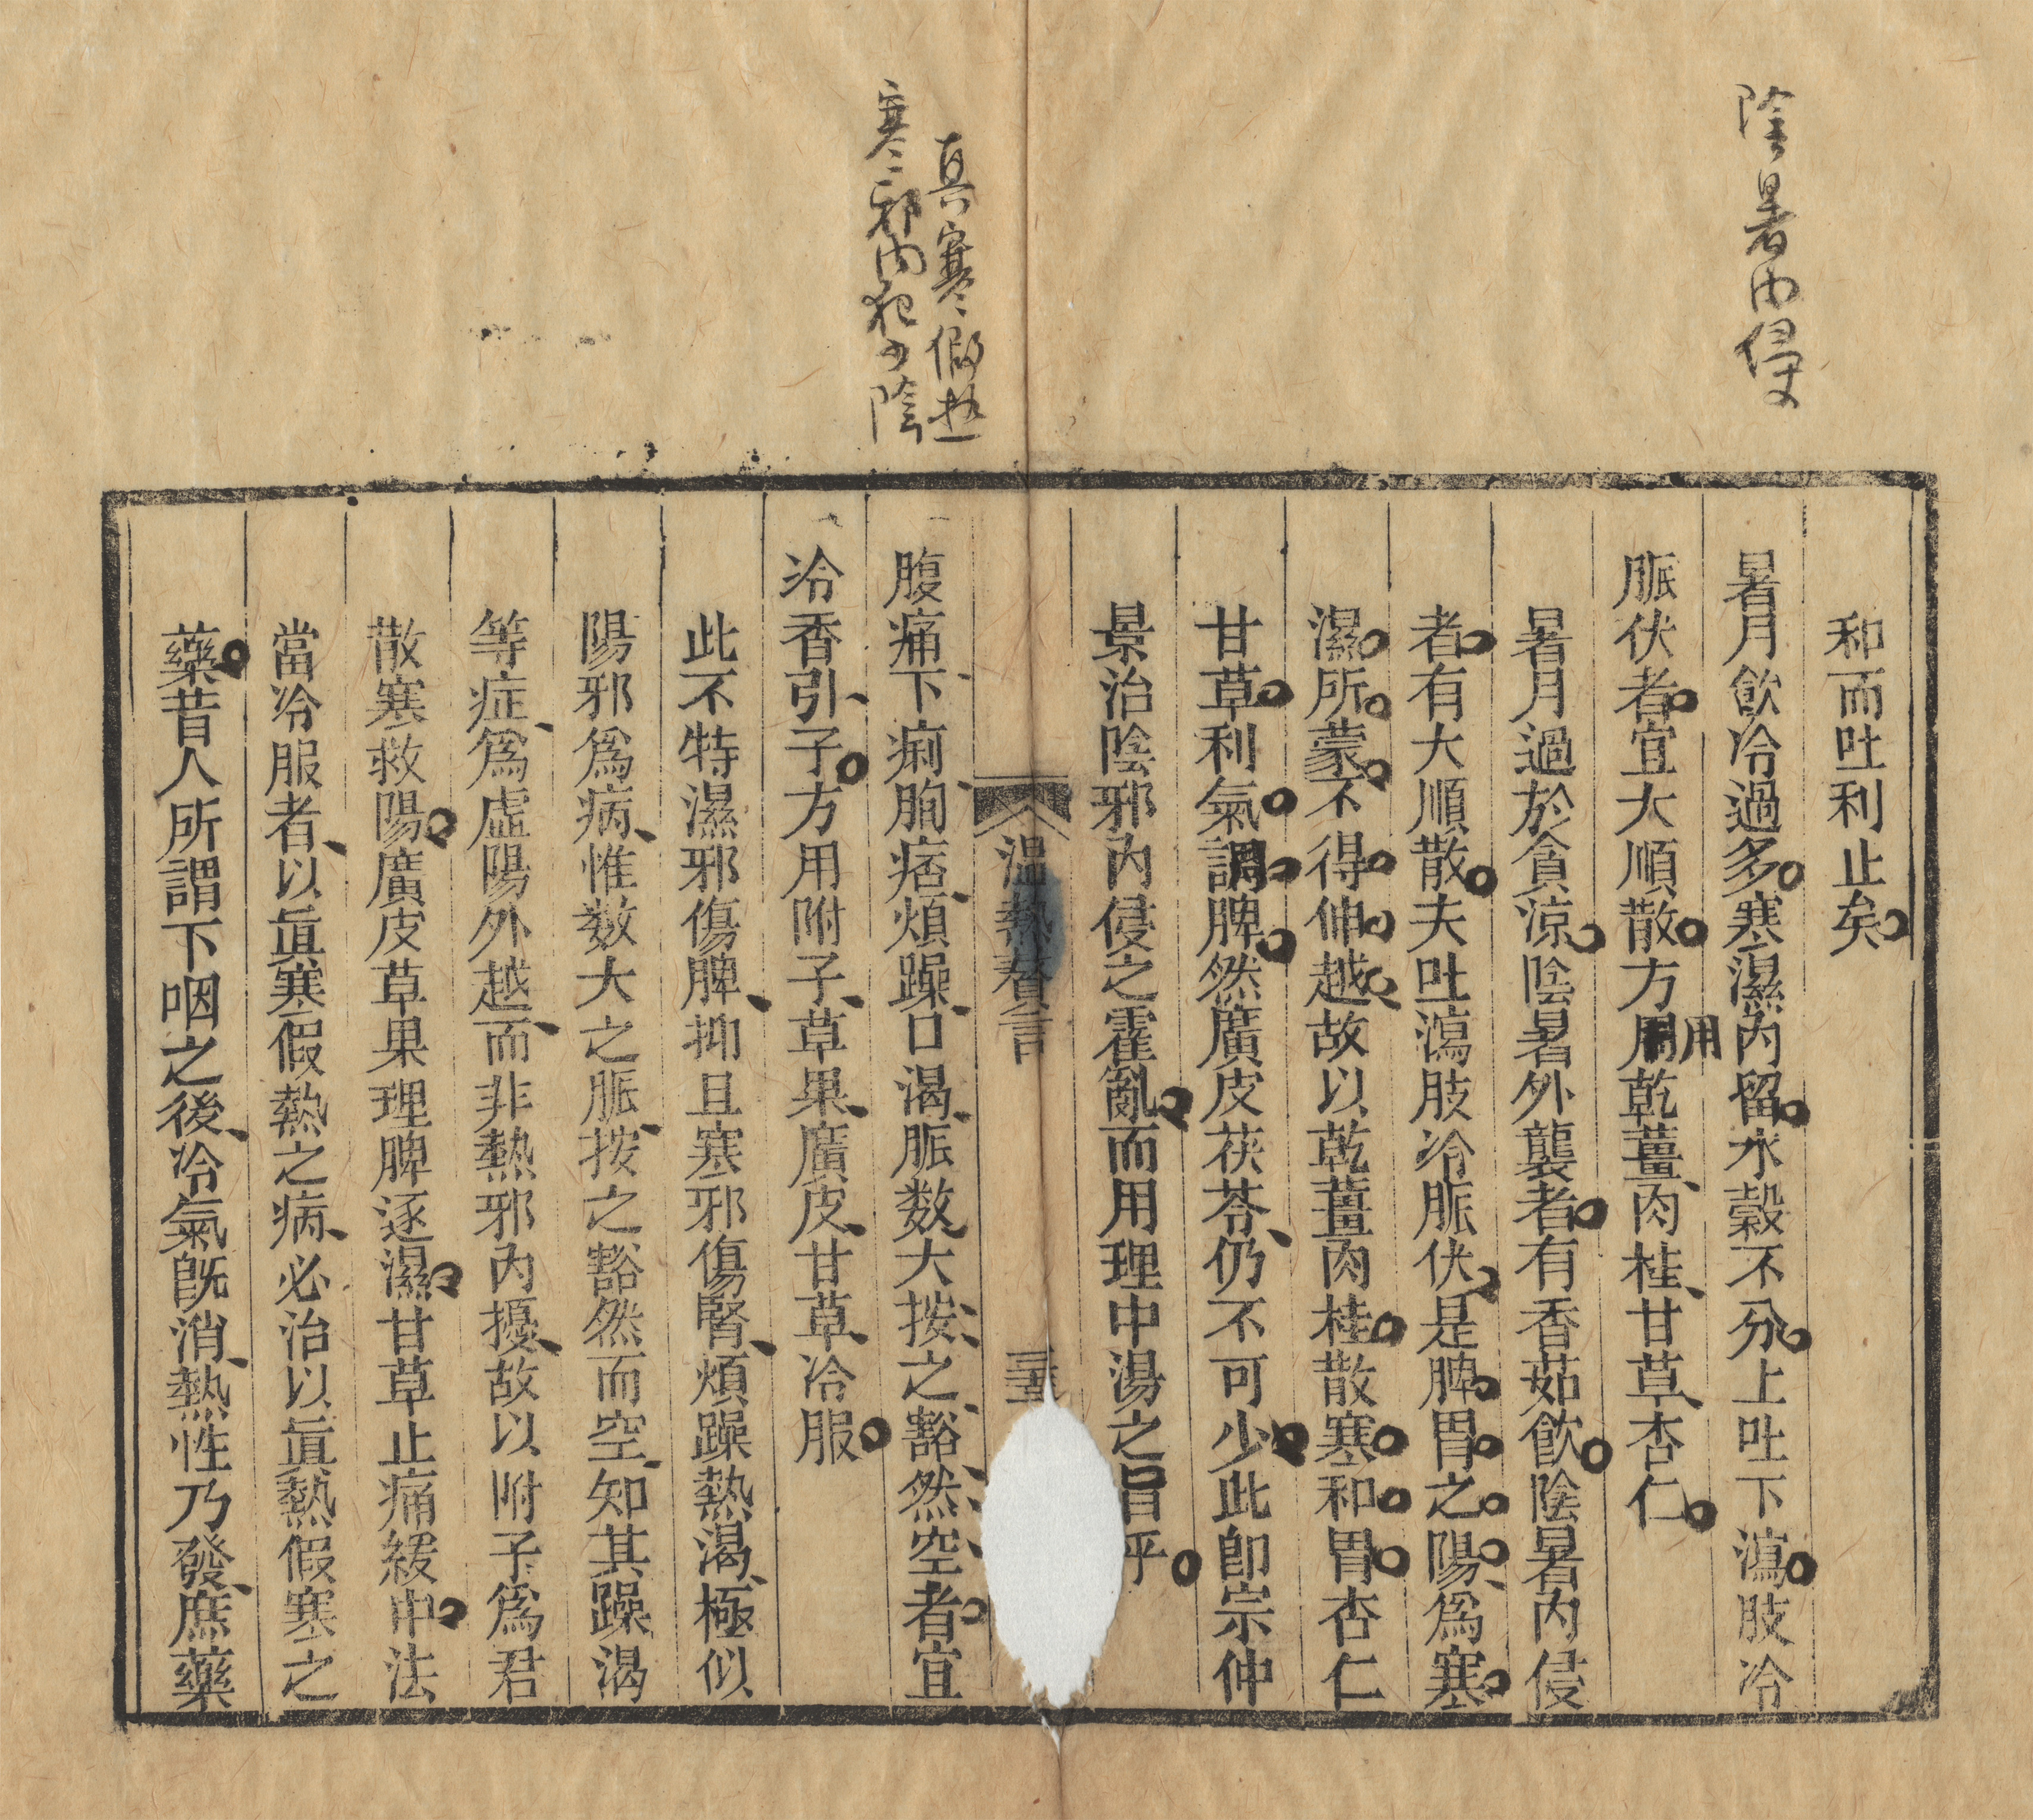 陰暑内侵
和而吐利止矣
暑月飲冷過多寒濕內留水穀不分上吐下瀉肢冷
脈伏者宜大順散方用乾薑肉桂甘草杏仁
用
暑月過於貪涼陰暑外襲者有香茹飲陰暑內侵
者有大順散夫吐瀉肢冷脈伏是脾胃之陽爲寒
濕所蒙不得伸越故以乾薑肉桂散寒和胃杏仁
甘草利氣調脾然廣皮茯苓仍不可少此卽宗仲
景治陰邪內侵之霍亂而用理中湯之旨乎
溫熱贅言
真寒假热
寒邪内犯少陰
腹痛下痢胸痞煩躁口渴脈数大按之豁然空者宜
冷香引子方用附子草果廣皮甘草冷服
此不特濕邪傷脾抑且寒邪傷腎煩躁熱渴極似
陽邪爲病惟数大之脈按之豁然而空知其躁渴
等症爲虛陽外越而非熱邪內擾故以附子爲君
散寒救陽廣皮草果理脾逐濕甘草止痛緩中法
當冷服者以眞寒假熱之病必治以眞熱假寒之
藥昔人所謂下咽之後冷氣旣消熱性乃發庶藥